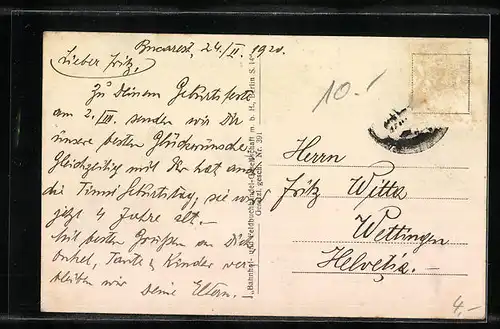 Bucarest, 24/II. 1920.
Lieber Fritz,
Zu Deinem Geburtsfeste
am 2. III. senden wir Dir
unsere besten Glückwünsche
Gleichzeitig mit Dir hat auch
die Timsi Geburtstag, sie wird
jetzt 4 Jahre alt. –
Mit besten Grüßen an Dich
Onkel, Tante & Kinder ver
bleiben wir Deine Eltern.
"Bahnhof- und Feldbuchhandel-Gesellschaft m. b. H., Berlin S. 14"
Gesetzl. gesch. Nr. 391
10.-
Herrn
Fritz Witta
Wettingen
Helvetia. –
4,-